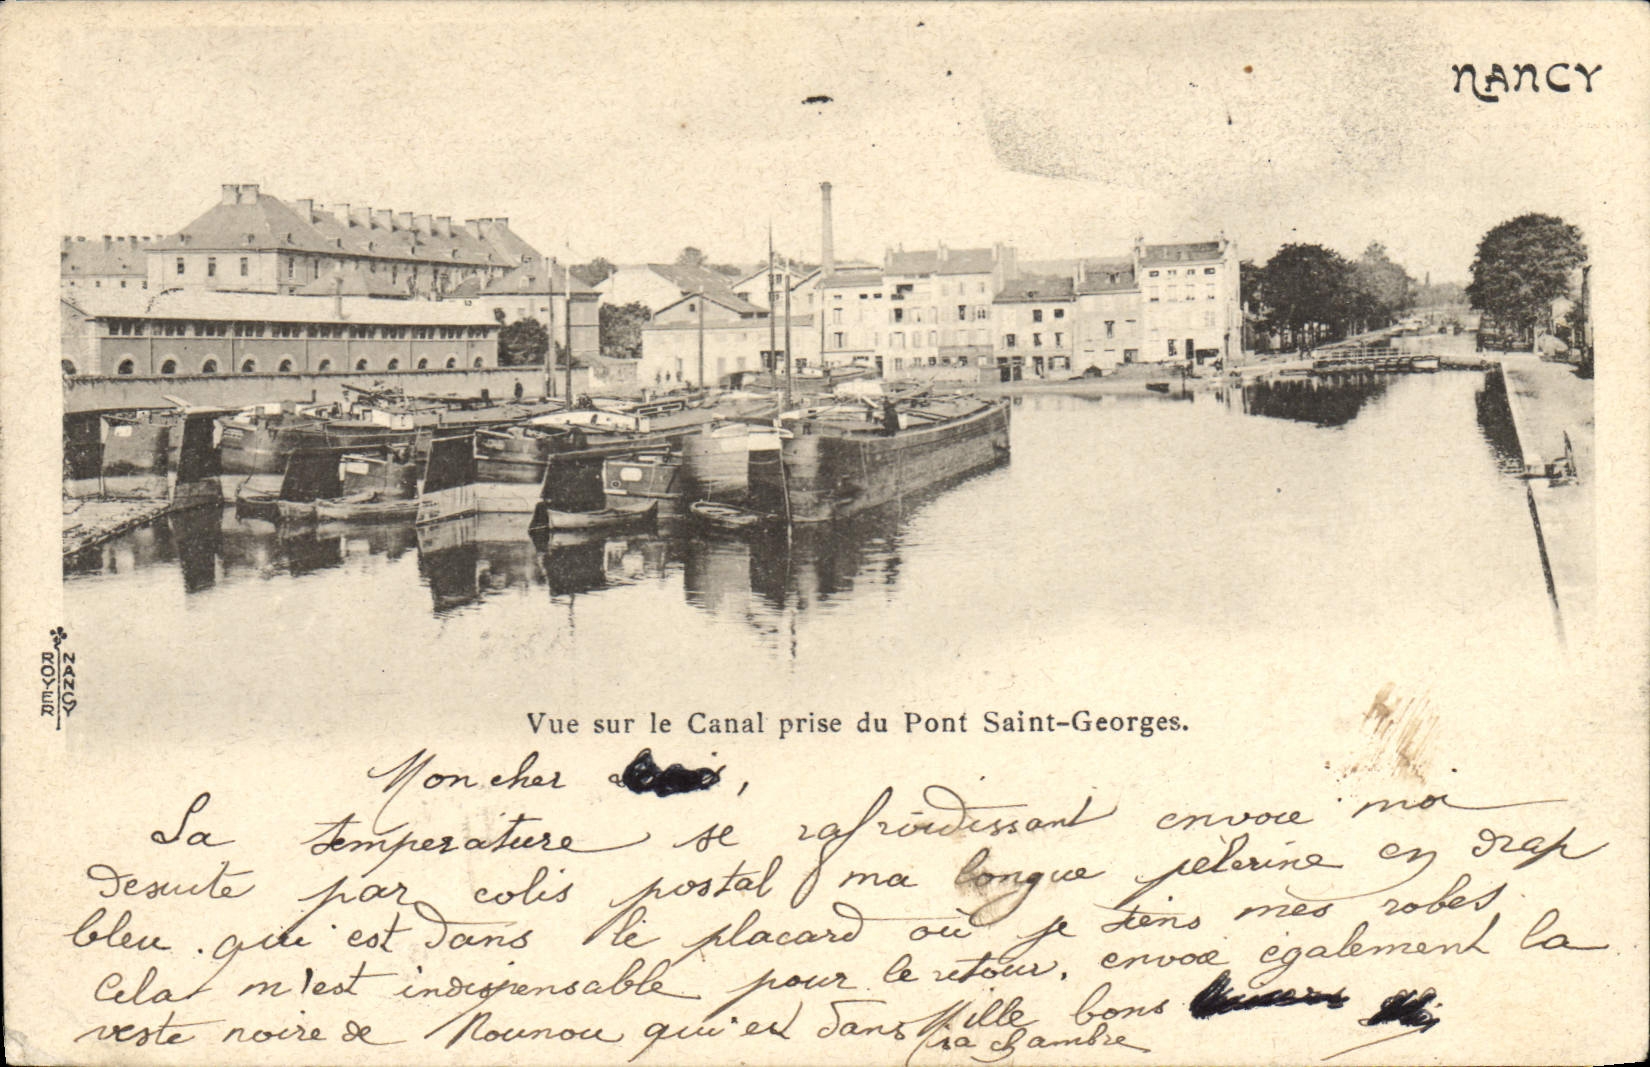 NANCY
NANCY
ROYER
Vue sur le Canal prise du Pont Saint-Georges.
Mon cher ,
La température se rafroidissant envoie moi
desuite par colis postal ma longue pèlerine en drap
bleu qui est dans le placard où je tiens mes robes
Cela m'est indispensable pour le retour. envoie également la
veste noire de Nounou qui est dans sa chambre
Mille bons